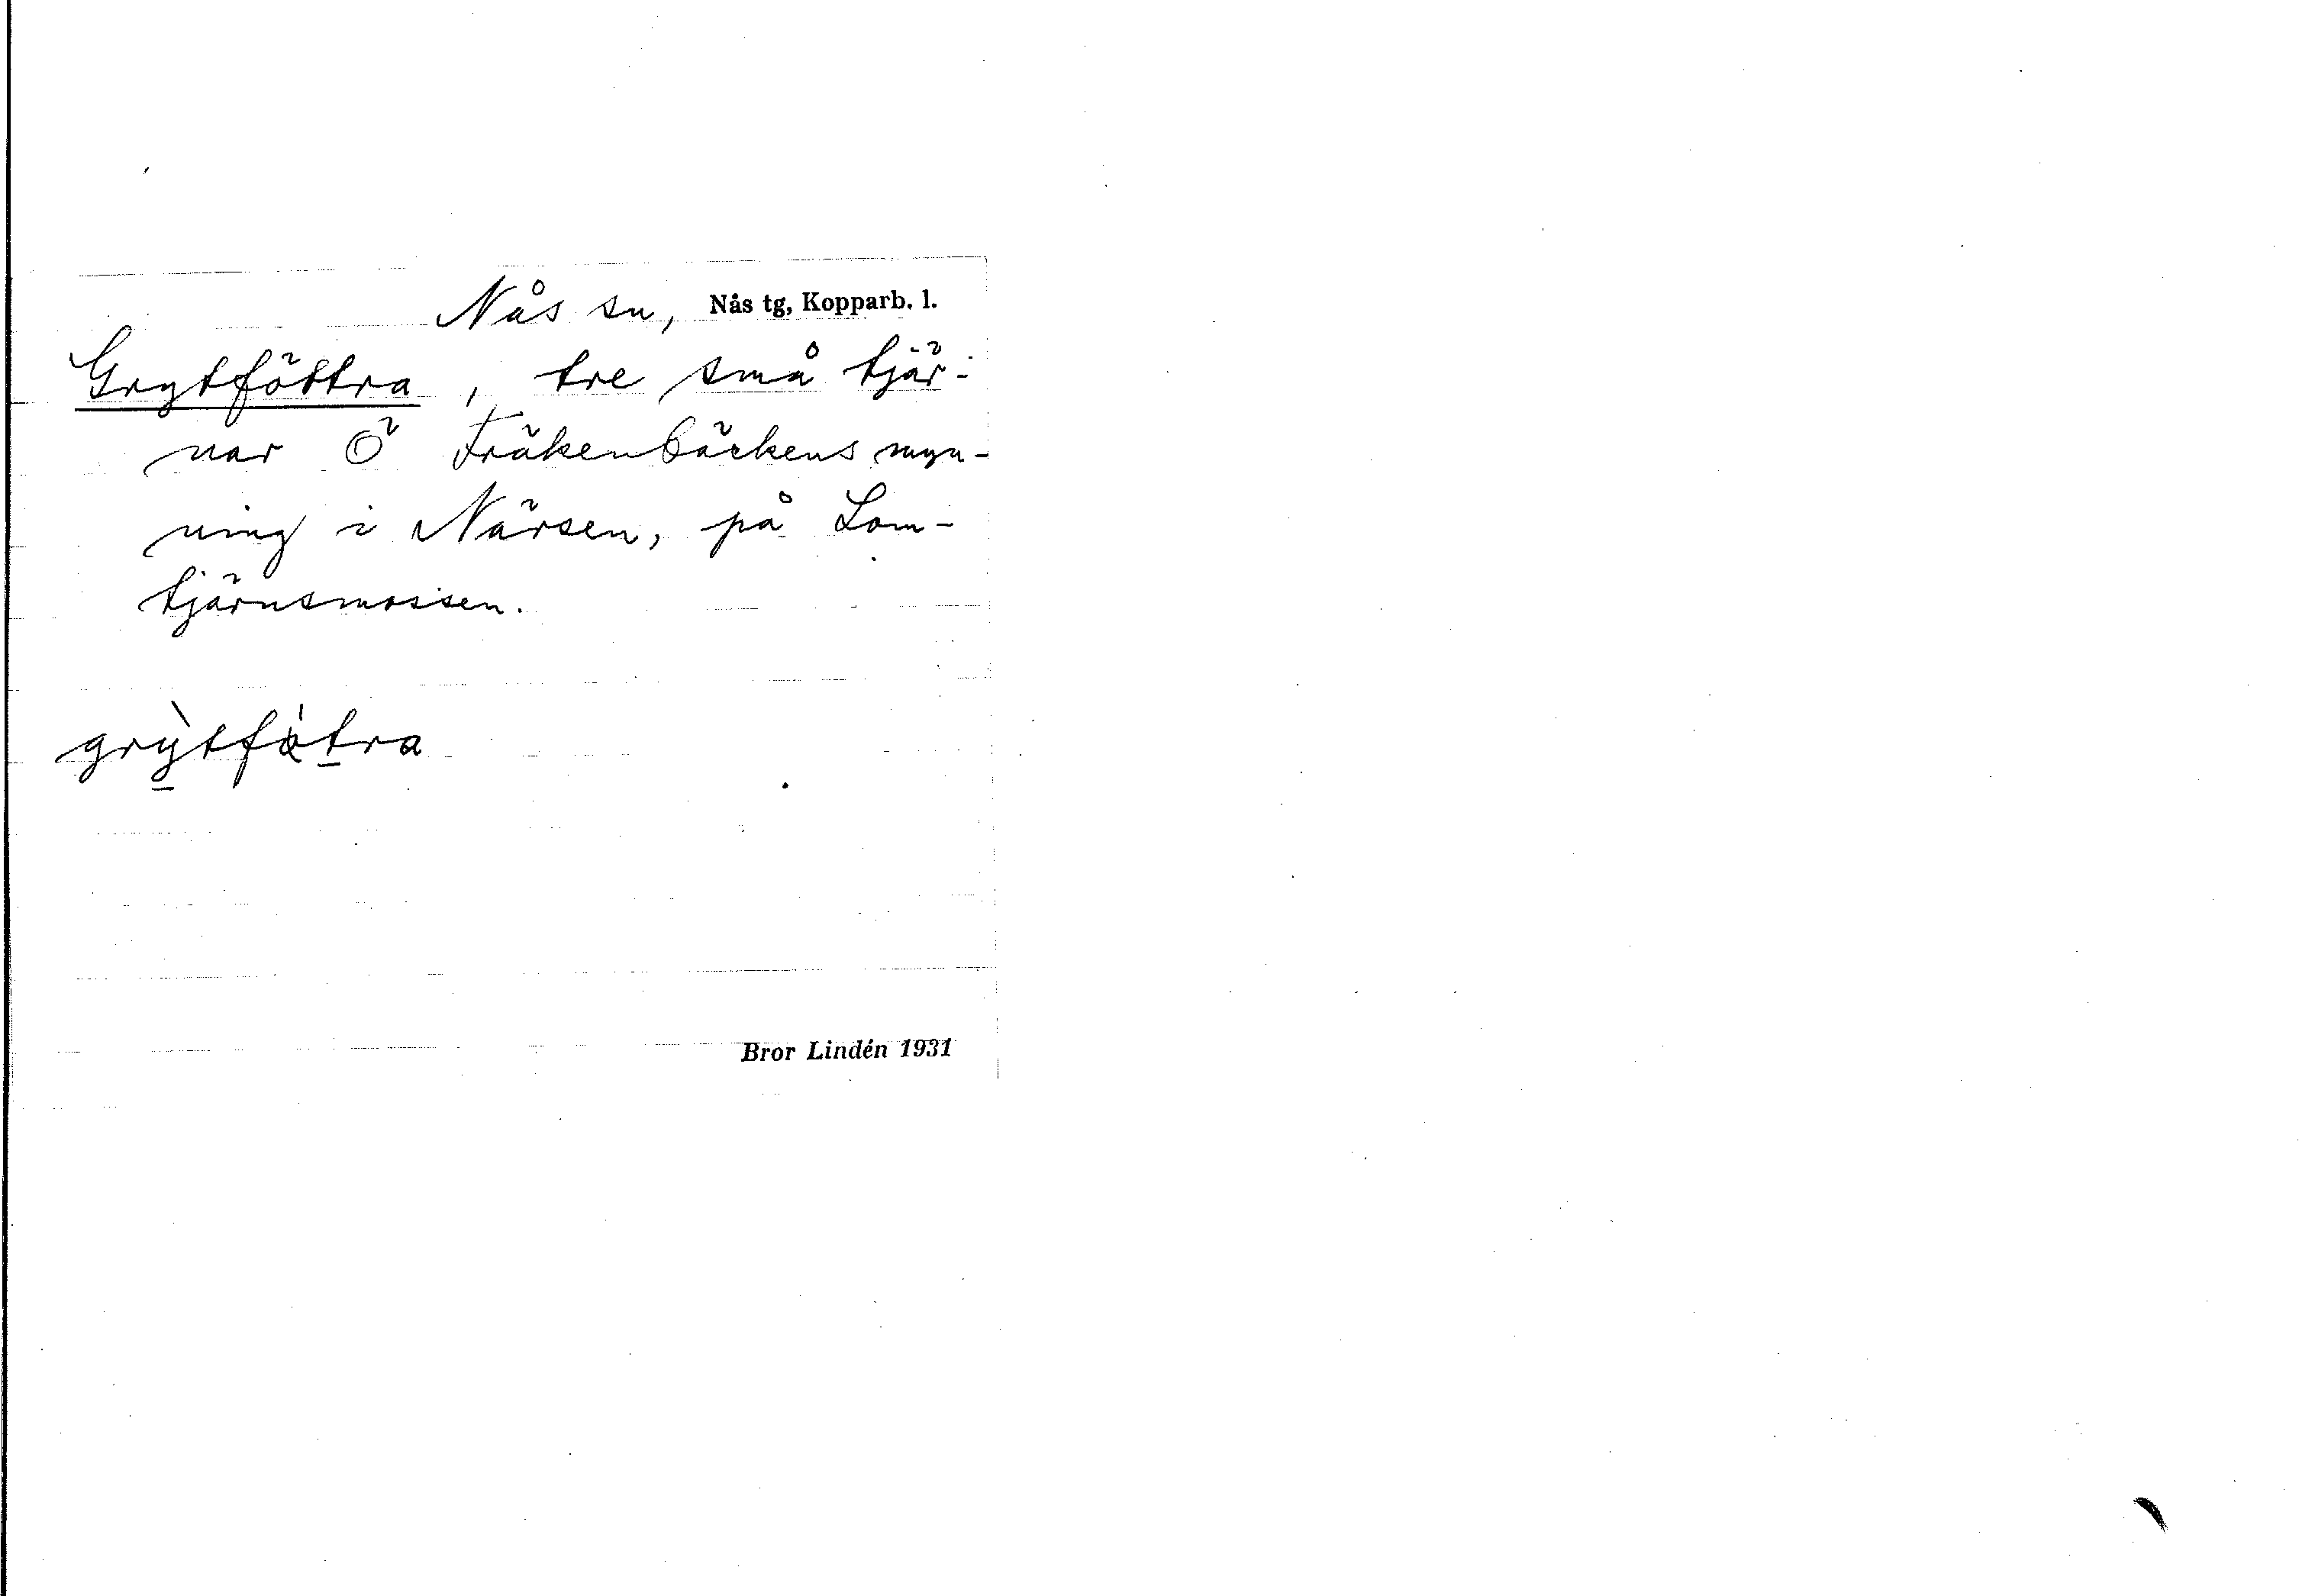 Nås sn, Nås tg, Kopparb. l.
Grytföttra, tre små tjär-
nar Ö Fräkenbäckens myn-
ning i Närsen, på Lom-
tjärnsmossen.
Bror Lindén 1931